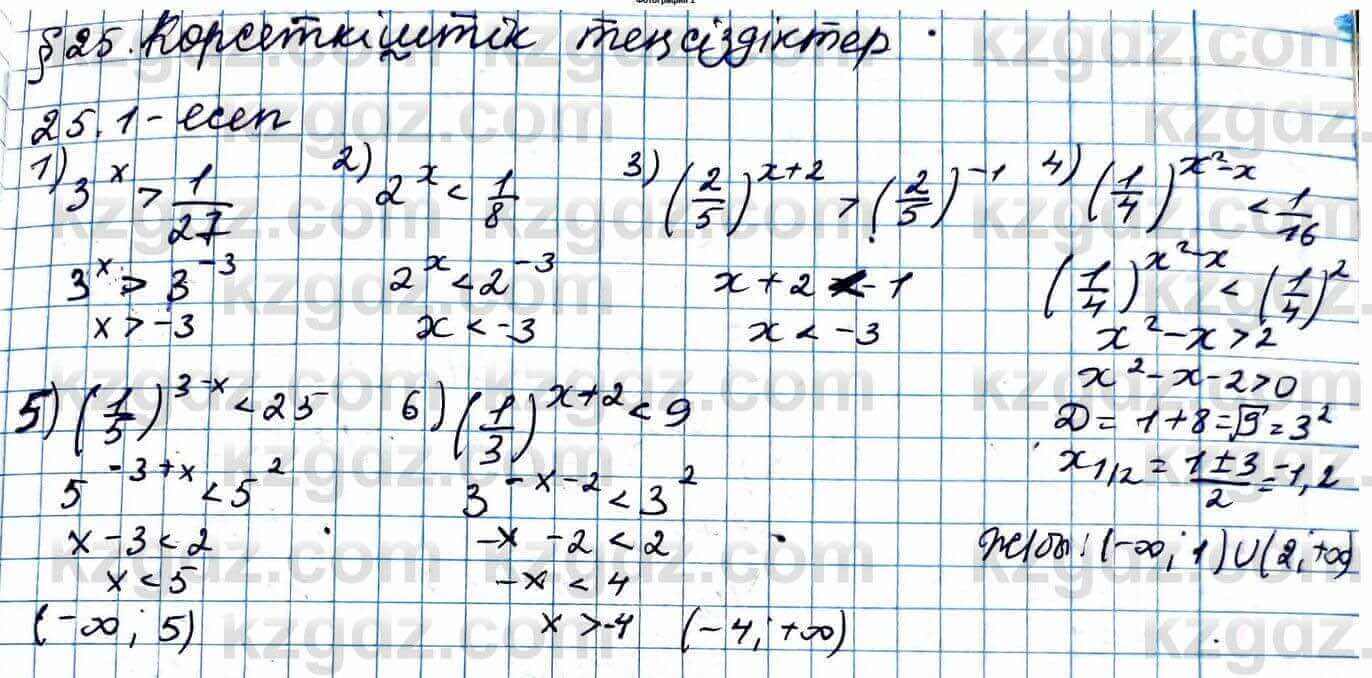 Фотография 1
§25. Көрсеткіштік теңсіздіктер
25.1-есеп
1) 3^x > 1/27
3^x > 3^-3
x > -3
2) 2^x < 1/8
2^x < 2^-3
x < -3
3) (2/5)^x+2 > (2/5)^-1
x + 2 < -1
x < -3
4) (1/4)^x²-x < 1/16
(1/4)^x²-x < (1/4)^2
x² - x > 2
x² - x - 2 > 0
D = 1 + 8 = √9 = 3²
x1,2 = 1±3/2 = -1, 2
Ж/бы: (-∞; 1) ∪ (2; +∞)
5) (1/5)^3-x < 25
5^-3+x < 5^2
x - 3 < 2
x < 5
(-∞; 5)
6) (1/3)^x+2 < 9
3^-x-2 < 3^2
-x - 2 < 2
-x < 4
x > -4 (-4; +∞)
kzgdz.com